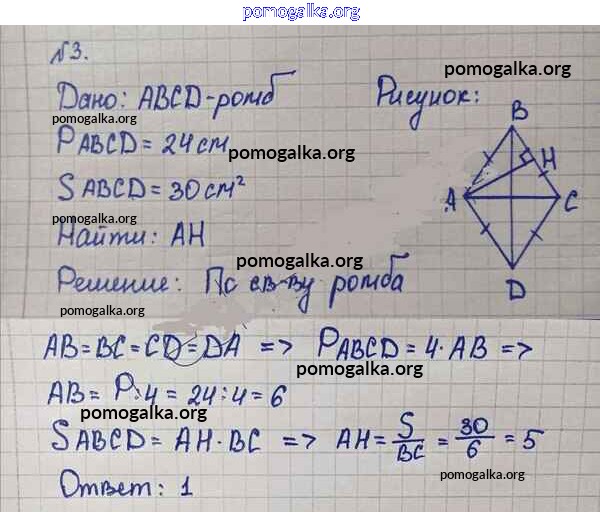 pomogalka.org
№3.
pomogalka.org
pomogalka.org
Дано: ABCD-ромб
Рисунок:
pomogalka.org
P ABCD = 24 см
pomogalka.org
B
H
S ABCD = 30 см²
A
C
pomogalka.org
Найти: AH
pomogalka.org
Решение: По св-ву ромба
D
pomogalka.org
AB = BC = CD = DA => P ABCD = 4 · AB =>
pomogalka.org
AB = P:4 = 24:4 = 6
pomogalka.org
S ABCD = AH · BC => AH = S/BC = 30/6 = 5
pomogalka.org
Ответ: 1